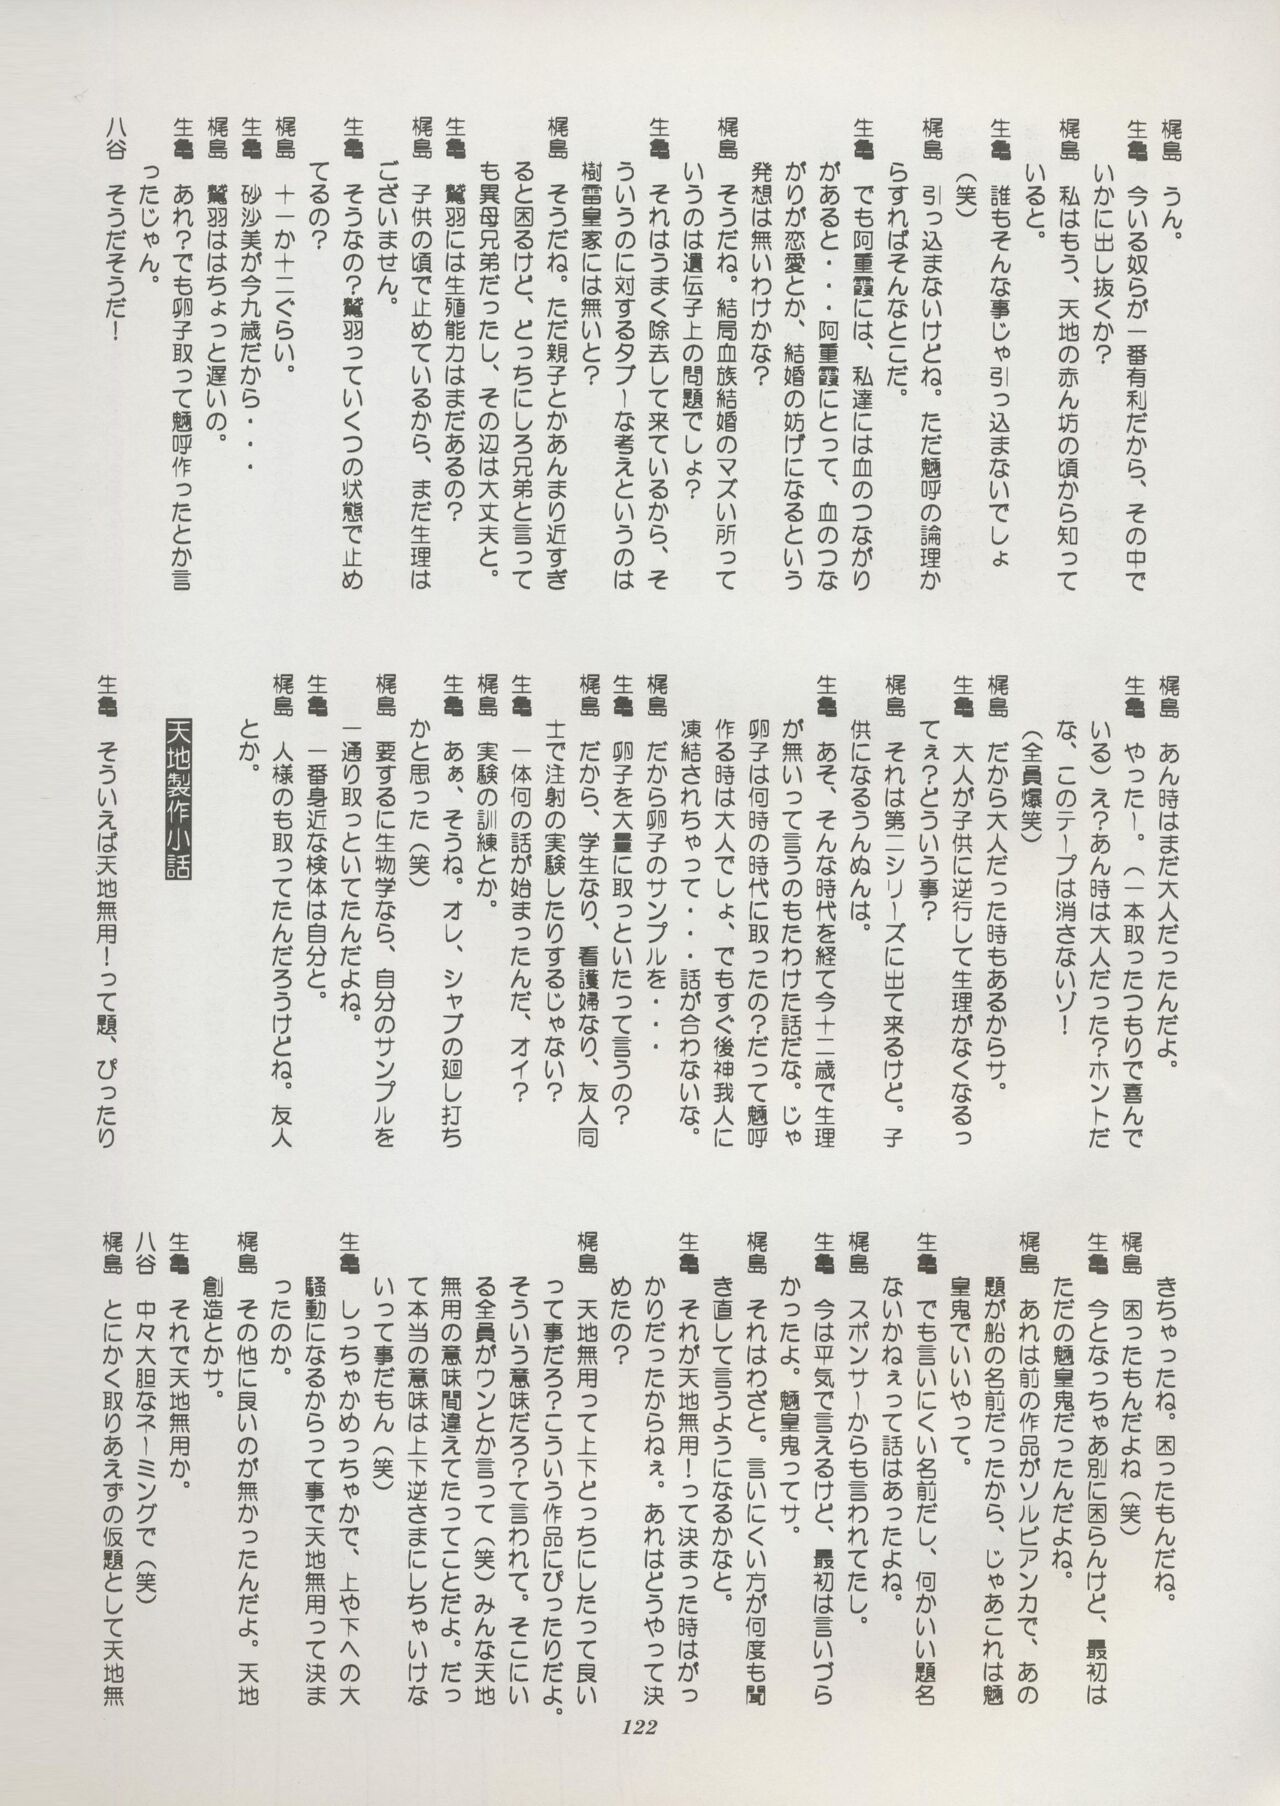 梶島　うん。
生亀　今いる奴らが一番有利だから、その中で
いかに出し抜くか？
梶島　私はもう、天地の赤ん坊の頃から知って
いると。
生亀　誰もそんな事じゃ引っ込まないでしょ
（笑）
梶島　引っ込まないけどね。ただ魎呼の論理か
らすればそんなとこだ。
生亀　でも阿重霞には、私達には血のつながり
があると・・・阿重霞にとって、血のつな
がりが恋愛とか、結婚の妨げになるという
発想は無いわけかな？
梶島　そうだね。結局血族結婚のマズい所って
いうのは遺伝子上の問題でしょ？
生亀　それはうまく除去して来ているから、そ
ういうのに対するタブーな考えというのは
樹雷皇家には無いと？
梶島　そうだね。ただ親子とかあんまり近すぎ
ると困るけど、どっちにしろ兄弟と言って
も異母兄弟だったし、その辺は大丈夫と。
生亀　鷲羽には生殖能力はまだあるの？
梶島　子供の頃で止めているから、まだ生理は
ございません。
生亀　そうなの？鷲羽っていくつの状態で止め
てるの？
梶島　十一か十二ぐらい。
生亀　砂沙美が今九歳だから・・・
梶島　鷲羽ははちょっと遅いの。
生亀　あれ？でも卵子取って魎呼作ったとか言
ったじゃん。
八谷　そうだそうだ！
梶島　あん時はまだ大人だったんだよ。
生亀　やった〜。（一本取ったつもりで喜んで
いる）え？あん時は大人だった？ホントだ
な、このテープは消さないゾ！
（全員爆笑）
梶島　だから大人だった時もあるからサ。
生亀　大人が子供に逆行して生理がなくなるっ
てぇ？どういう事？
梶島　それは第二シリーズに出て来るけど。子
供になるうんぬんは。
生亀　あそ、そんな時代を経て今十二歳で生理
が無いって言うのもたわけた話だな。じゃ
卵子は何時の時代に取ったの？だって魎呼
作る時は大人でしょ、でもすぐ後神我人に
凍結されちゃって・・・話が合わないな。
梶島　だから卵子のサンプルを・・・
生亀　卵子を大量に取っといたって言うの？
梶島　だから、学生なり、看護婦なり、友人同
士で注射の実験したりするじゃない？
生亀　一体何の話が始まったんだ、オイ？
梶島　実験の訓練とか。
生亀　あぁ、そうね。オレ、シャブの廻し打ち
かと思った（笑）
梶島　要するに生物学なら、自分のサンプルを
一通り取っといてたんだよね。
生亀　一番身近な検体は自分と。
梶島　人様のも取ってたんだろうけどね。友人
とか。
天地製作小話
生亀　そういえば天地無用！って題、ぴったり
きちゃったね。困ったもんだね。
梶島　困ったもんだよね（笑）
生亀　今となっちゃあ別に困らんけど、最初は
ただの魎皇鬼だったんだよね。
梶島　あれは前の作品がソルビアンカで、あの
題が船の名前だったから、じゃあこれは魎
皇鬼でいいやって。
生亀　でも言いにくい名前だし、何かいい題名
ないかねぇって話はあったよね。
梶島　スポンサーからも言われてたし。
生亀　今は平気で言えるけど、最初は言いづら
かったよ。魎皇鬼ってサ。
梶島　それはわざと。言いにくい方が何度も聞
き直して言うようになるかなと。
生亀　それが天地無用！って決まった時はがっ
かりだったからねぇ。あれはどうやって決
めたの？
梶島　天地無用って上下どっちにしたって良い
って事だろ？こういう作品にぴったりだよ。
そういう意味だろ？て言われて。そこにい
る全員がウンとか言って（笑）みんな天地
無用の意味間違えてたってことだよ。だっ
て本当の意味は上下逆さまにしちゃいけな
いって事だもん（笑）
生亀　しっちゃかめっちゃかで、上や下への大
騒動になるからって事で天地無用って決ま
ったのか。
梶島　その他に良いのが無かったんだよ。天地
創造とかサ。
生亀　それで天地無用か。
八谷　中々大胆なネーミングで（笑）
梶島　とにかく取りあえずの仮題として天地無
122